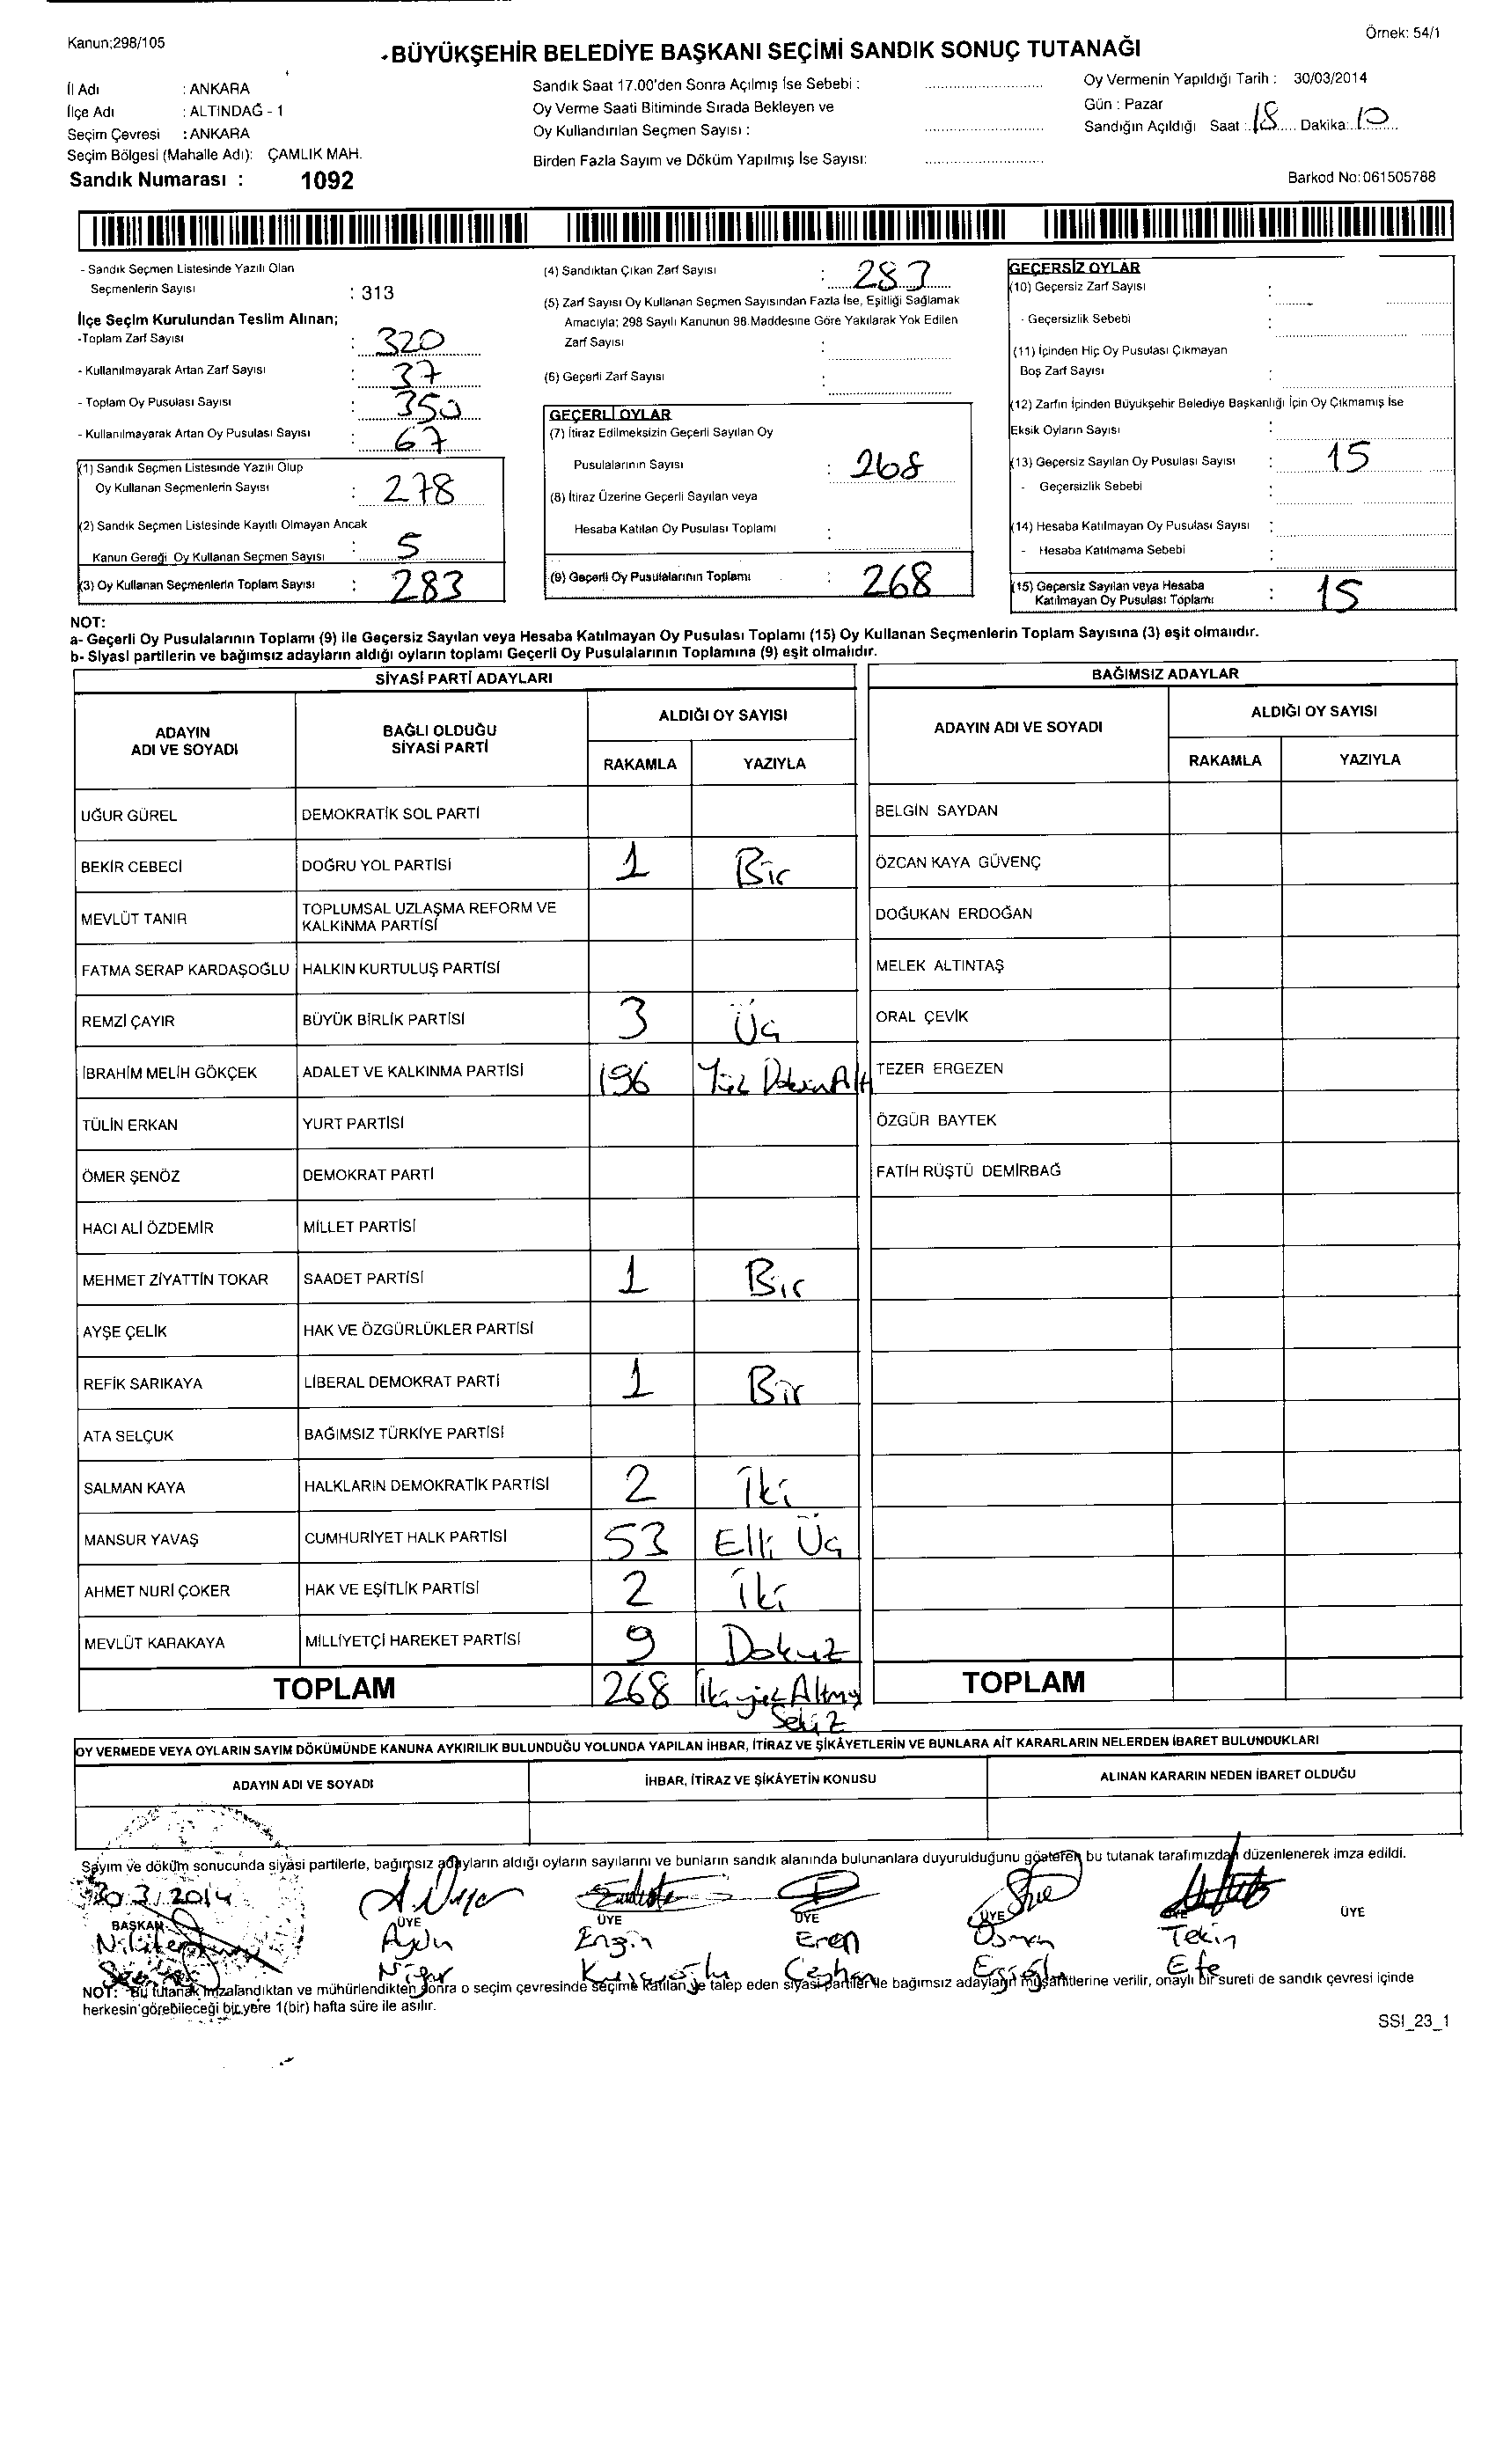 Kanun;298/105
Örnek: 54/1
-BÜYÜKŞEHİR BELEDİYE BAŞKANI SEÇİMİ SANDIK SONUÇ TUTANAĞI
İl Adı : ANKARA
İlçe Adı : ALTINDAĞ - 1
Seçim Çevresi : ANKARA
Seçim Bölgesi (Mahalle Adı): ÇAMLIK MAH.
Sandık Numarası : 1092
Sandık Saat 17.00'den Sonra Açılmış İse Sebebi :
Oy Verme Saati Bitiminde Sırada Bekleyen ve
Oy Kullandırılan Seçmen Sayısı :
Birden Fazla Sayım ve Döküm Yapılmış İse Sayısı:
Oy Vermenin Yapıldığı Tarih : 30/03/2014
Gün : Pazar
Sandığın Açıldığı Saat : 18 Dakika: 10
Barkod No:061505788
- Sandık Seçmen Listesinde Yazılı Olan
Seçmenlerin Sayısı : 313
İlçe Seçim Kurulundan Teslim Alınan;
-Toplam Zarf Sayısı : 320
- Kullanılmayarak Artan Zarf Sayısı : 37
- Toplam Oy Pusulası Sayısı : 350
- Kullanılmayarak Artan Oy Pusulası Sayısı : 67
(1) Sandık Seçmen Listesinde Yazılı Olup
Oy Kullanan Seçmenlerin Sayısı : 278
(2) Sandık Seçmen Listesinde Kayıtlı Olmayan Ancak
Kanun Gereği Oy Kullanan Seçmen Sayısı : 5
(3) Oy Kullanan Seçmenlerin Toplam Sayısı : 283
(4) Sandıktan Çıkan Zarf Sayısı : 283
(5) Zarf Sayısı Oy Kullanan Seçmen Sayısından Fazla İse, Eşitliği Sağlamak
Amacıyla; 298 Sayılı Kanunun 98.Maddesine Göre Yakılarak Yok Edilen
Zarf Sayısı :
(6) Geçerli Zarf Sayısı :
GEÇERLİ OYLAR
(7) İtiraz Edilmeksizin Geçerli Sayılan Oy
Pusulalarının Sayısı : 268
(8) İtiraz Üzerine Geçerli Sayılan veya
Hesaba Katılan Oy Pusulası Toplamı :
(9) Geçerli Oy Pusulalarının Toplamı : 268
GEÇERSİZ OYLAR
(10) Geçersiz Zarf Sayısı :
- Geçersizlik Sebebi :
(11) İçinden Hiç Oy Pusulası Çıkmayan
Boş Zarf Sayısı :
(12) Zarfın İçinden Büyükşehir Belediye Başkanlığı İçin Oy Çıkmamış İse
Eksik Oyların Sayısı :
(13) Geçersiz Sayılan Oy Pusulası Sayısı : 15
- Geçersizlik Sebebi :
(14) Hesaba Katılmayan Oy Pusulası Sayısı :
- Hesaba Katılmama Sebebi :
(15) Geçersiz Sayılan veya Hesaba
Katılmayan Oy Pusulası Toplamı : 15
NOT:
a- Geçerli Oy Pusulalarının Toplamı (9) ile Geçersiz Sayılan veya Hesaba Katılmayan Oy Pusulası Toplamı (15) Oy Kullanan Seçmenlerin Toplam Sayısına (3) eşit olmalıdır.
b- Siyasi partilerin ve bağımsız adayların aldığı oyların toplamı Geçerli Oy Pusulalarının Toplamına (9) eşit olmalıdır.
SİYASİ PARTİ ADAYLARI
ADAYIN ADI VE SOYADI
BAĞLI OLDUĞU SİYASİ PARTİ
ALDIĞI OY SAYISI
RAKAMLA YAZIYLA
UĞUR GÜREL DEMOKRATİK SOL PARTİ
BEKİR CEBECİ DOĞRU YOL PARTİSİ 1 Bir
MEVLÜT TANIR TOPLUMSAL UZLAŞMA REFORM VE KALKINMA PARTİSİ
FATMA SERAP KARDAŞOĞLU HALKIN KURTULUŞ PARTİSİ
REMZİ ÇAYIR BÜYÜK BİRLİK PARTİSİ 3 Üç
İBRAHİM MELİH GÖKÇEK ADALET VE KALKINMA PARTİSİ 196 Yüz Doksan Altı
TÜLİN ERKAN YURT PARTİSİ
ÖMER ŞENÖZ DEMOKRAT PARTİ
HACI ALİ ÖZDEMİR MİLLET PARTİSİ
MEHMET ZİYATTİN TOKAR SAADET PARTİSİ 1 Bir
AYŞE ÇELİK HAK VE ÖZGÜRLÜKLER PARTİSİ
REFİK SARIKAYA LİBERAL DEMOKRAT PARTİ 1 Bir
ATA SELÇUK BAĞIMSIZ TÜRKİYE PARTİSİ
SALMAN KAYA HALKLARIN DEMOKRATİK PARTİSİ 2 İki
MANSUR YAVAŞ CUMHURİYET HALK PARTİSİ 53 Elli Üç
AHMET NURİ ÇOKER HAK VE EŞİTLİK PARTİSİ 2 İki
MEVLÜT KARAKAYA MİLLİYETÇİ HAREKET PARTİSİ 9 Dokuz
TOPLAM 268 İkiyüz Altmış
Sekiz
BAĞIMSIZ ADAYLAR
ADAYIN ADI VE SOYADI
ALDIĞI OY SAYISI
RAKAMLA YAZIYLA
BELGİN SAYDAN
ÖZCAN KAYA GÜVENÇ
DOĞUKAN ERDOĞAN
MELEK ALTINTAŞ
ORAL ÇEVİK
TEZER ERGEZEN
ÖZGÜR BAYTEK
FATİH RÜŞTÜ DEMİRBAĞ
TOPLAM
OY VERMEDE VEYA OYLARIN SAYIM DÖKÜMÜNDE KANUNA AYKIRILIK BULUNDUĞU YOLUNDA YAPILAN İHBAR, İTİRAZ VE ŞİKÂYETLERİN VE BUNLARA AİT KARARLARIN NELERDEN İBARET BULUNDUKLARI
ADAYIN ADI VE SOYADI İHBAR, İTİRAZ VE ŞİKÂYETİN KONUSU ALINAN KARARIN NEDEN İBARET OLDUĞU
Sayım ve döküm sonucunda siyasi partilerle, bağımsız adayların aldığı oyların sayılarını ve bunların sandık alanında bulunanlara duyurulduğunu gösteren bu tutanak tarafımızdan düzenlenerek imza edildi.
30.3.2014
BAŞKAN ÜYE ÜYE ÜYE ÜYE ÜYE ÜYE
Aydın Engin Eren Osman Tekin
Nigar Ceyhan Efe
NOT: Bu tutanak imzalandıktan ve mühürlendikten sonra o seçim çevresinde seçime katılan ve talep eden siyasi partiler ile bağımsız adayların müşahitlerine verilir, onaylı bir sureti de sandık çevresi içinde
herkesin görebileceği bir yere 1(bir) hafta süre ile asılır.
SSI_23_1